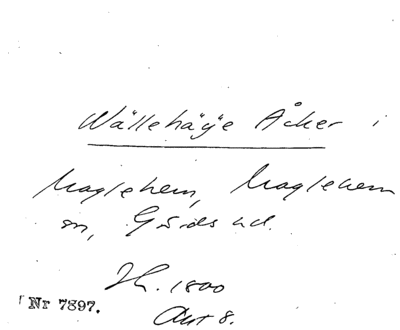 Wällehäije Åker i
Maglehem, Maglehem
sn, Gärds hd.
Jh. 1800
Akt 8.
Nr 7897.